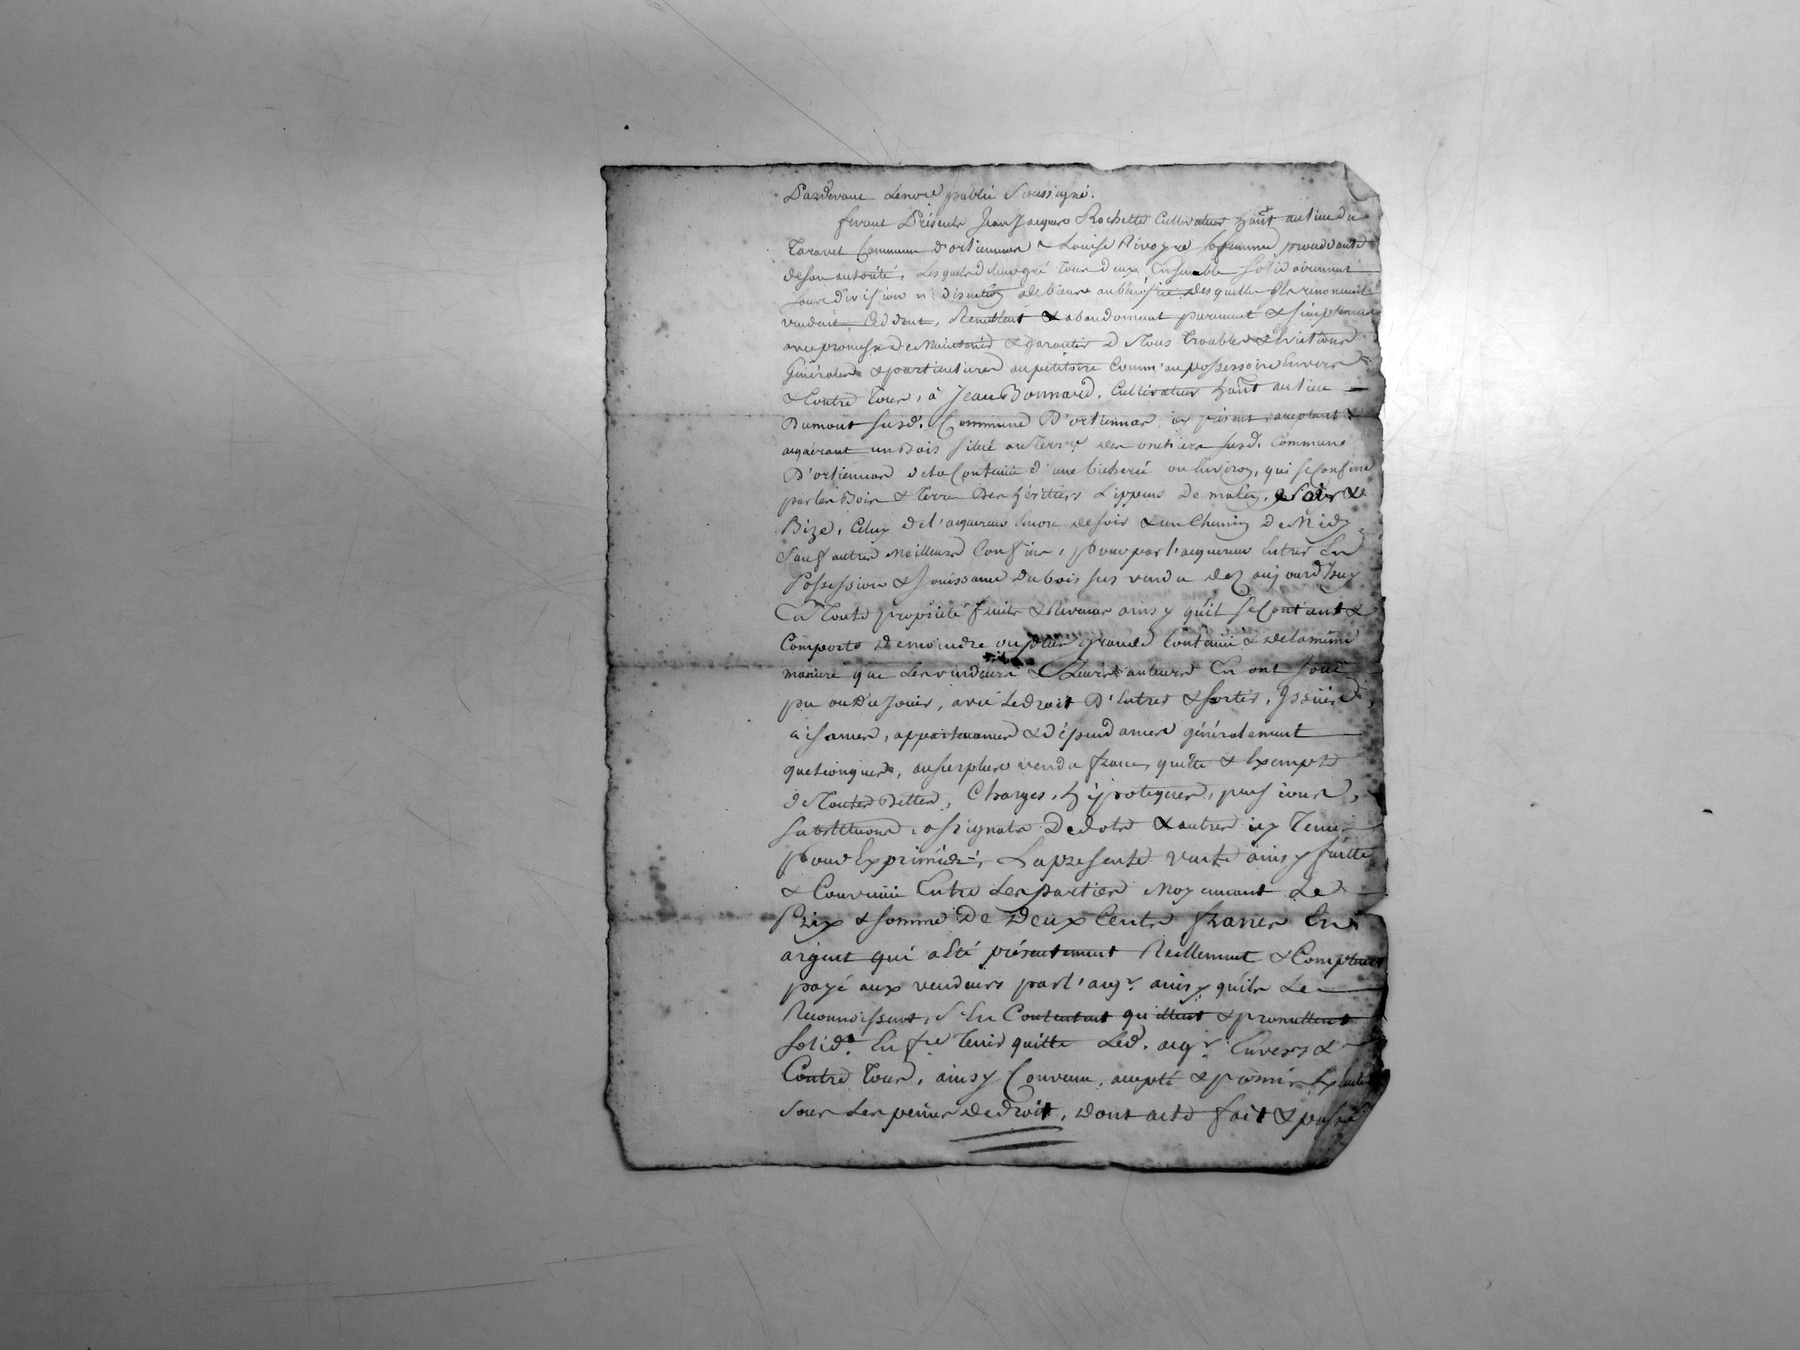 Pardevant Lenore public Soussigné.
furent Présents Jean Jacques Rochette Cultivateur hant au lieu du
Taravet Commune d'ortiennas & Louise sa femme procedante
de son autorité, Lesquels de leur gré tous deux Ensemble solidairement
sans division ni discution de biens au bénéfice desquelles Ils renoncent
vendent, Ceddent, Remettent & abandonnent purement & simplement
avec promesse de Maintenir & garantir de Tous Troubles & Evictions
Générales & particulieres au pétitoire Comm'au possessoire Envers
& Contre Tous, à Jean Bonnard, Cultivateur hant au lieu
Dumont susd. Commune D'ortiennas, icy présent, acceptant &
aquérant un Bois situé au Terrre des susd. Commune
D'ortiennas de la Contenue d'une bicherée ou Environ, qui se Confine
par les Bois & Terre Des héritiers Lippens de matin, &
Bize, Celuy de l'aquereur Encore de soir & un Chemin De Midy
Sauf autres Meilleurs Confins, pour par l'aquereur Entrer En
Possession & Jouissance du bois sus vendu dez aujourd'huy
En Toute propriété fruits & Revenus ainsy qu'il se Contient &
Comporte de moindre ou plus grande Contenue & de la même
maniere que Les vendeurs & Leurs auteurs En ont Joui
pu ou Du Jouir, avec Le droit D'Entrer & sortir, Issües
aisances, appartenances & dépendances généralement
quelconques, au surplus vendu franc, quitte & Exempt
de Toutes Dettes, Charges, hÿpoteques, pensions,
substitutions, assignats De dote & autres icy Tenus
pour Exprimés, La presente vente ainsy faitte
& Convenüe Entre Les parties Moyennant Le
Prix & somme De Deux Cents francs En
argent qui a Eté présentement Reellement & Comptant
payé aux vendeurs par l'aqr. ainsy qu'ils Le
Reconnoissent, s'En Contentent quittent & promettent
solid.e En fre Tenir quitte Led. aqr. Envers &
Contre Tous, ainsy Convenu, accepté & promis
sous Les peines de droit, Dont acte fait & passé